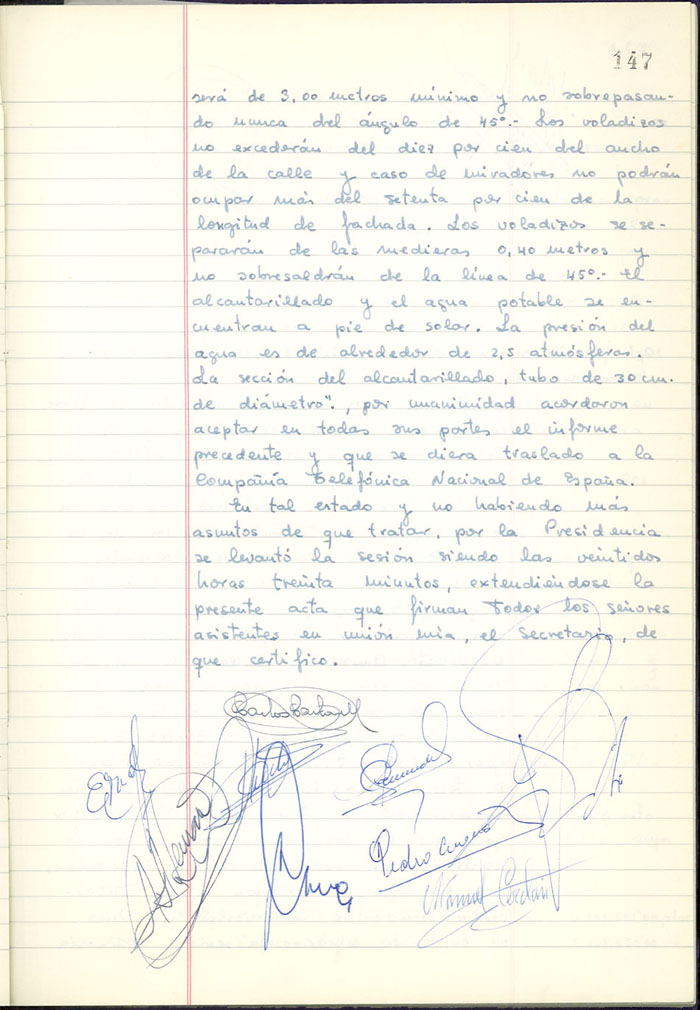 147
será de 3,00 metros mínimo y no sobrepasan-
do nunca del ángulo de 45º.- Los voladizos
no excederán del diez por cien del ancho
de la calle y caso de miradores no podrán
ocupar más del setenta por cien de la
longitud de fachada. Los voladizos se se-
pararán de las medieras 0,40 metros y
no sobresaldrán de la línea de 45º.- El
alcantarillado y el agua potable se en-
cuentran a pie de solar. La presión del
agua es de alrededor de 2,5 atmósferas.
La sección del alcantarillado, tubo de 30 cm.
de diámetro"., por unanimidad acordaron
aceptar en todas sus partes el informe
precedente y que se diera traslado a la
Compañía Telefónica Nacional de España.
En tal estado y no habiendo más
asuntos de que tratar, por la Presidencia
se levantó la sesión siendo las veintidos
horas treinta minutos, extendiéndose la
presente acta que firman todos los señores
asistentes en unión mia, el Secretario, de
que certifico.
Carlos
Pedro
Manuel Cerdán